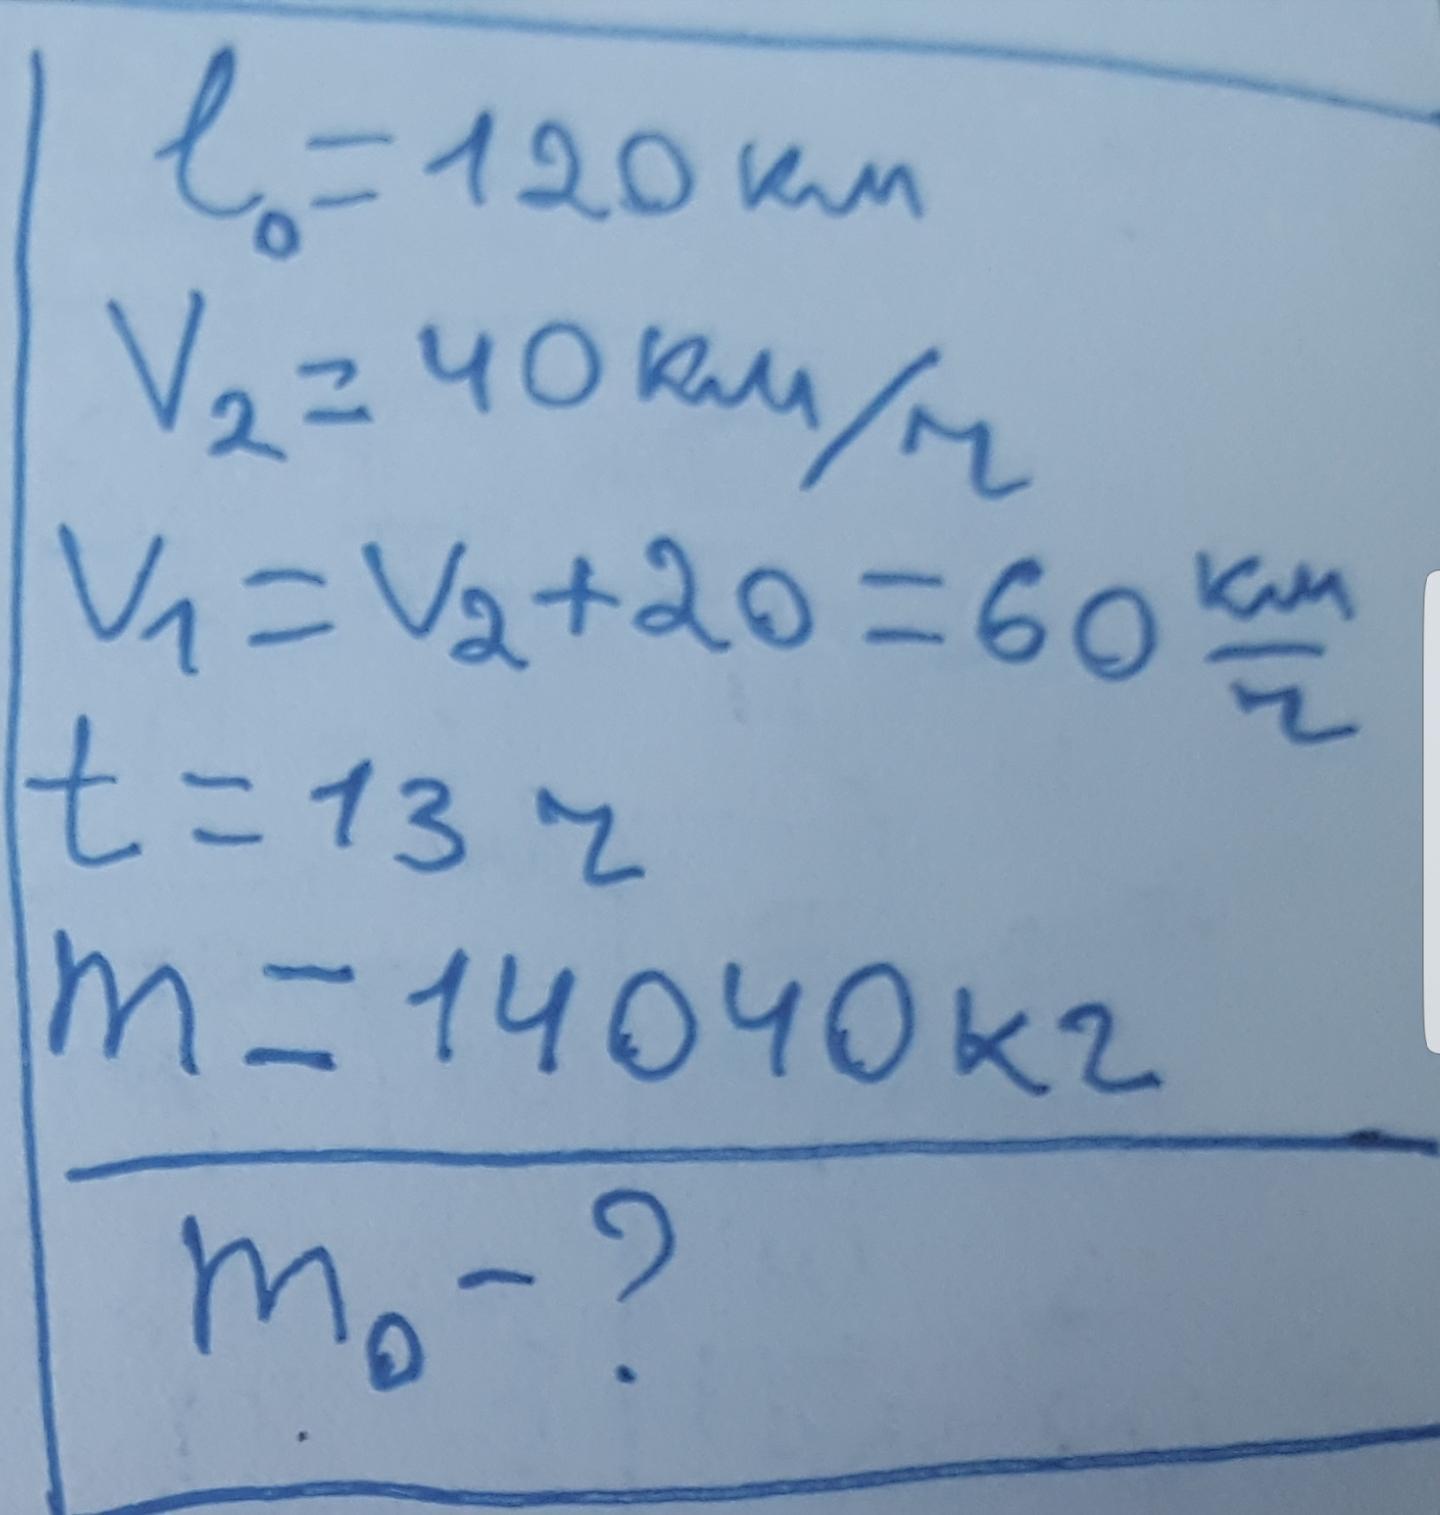 l₀ = 120 км
V₂ = 40 км/ч
V₁ = V₂ + 20 = 60 км/ч
t = 13 ч
m = 14040 кг
m₀ - ?